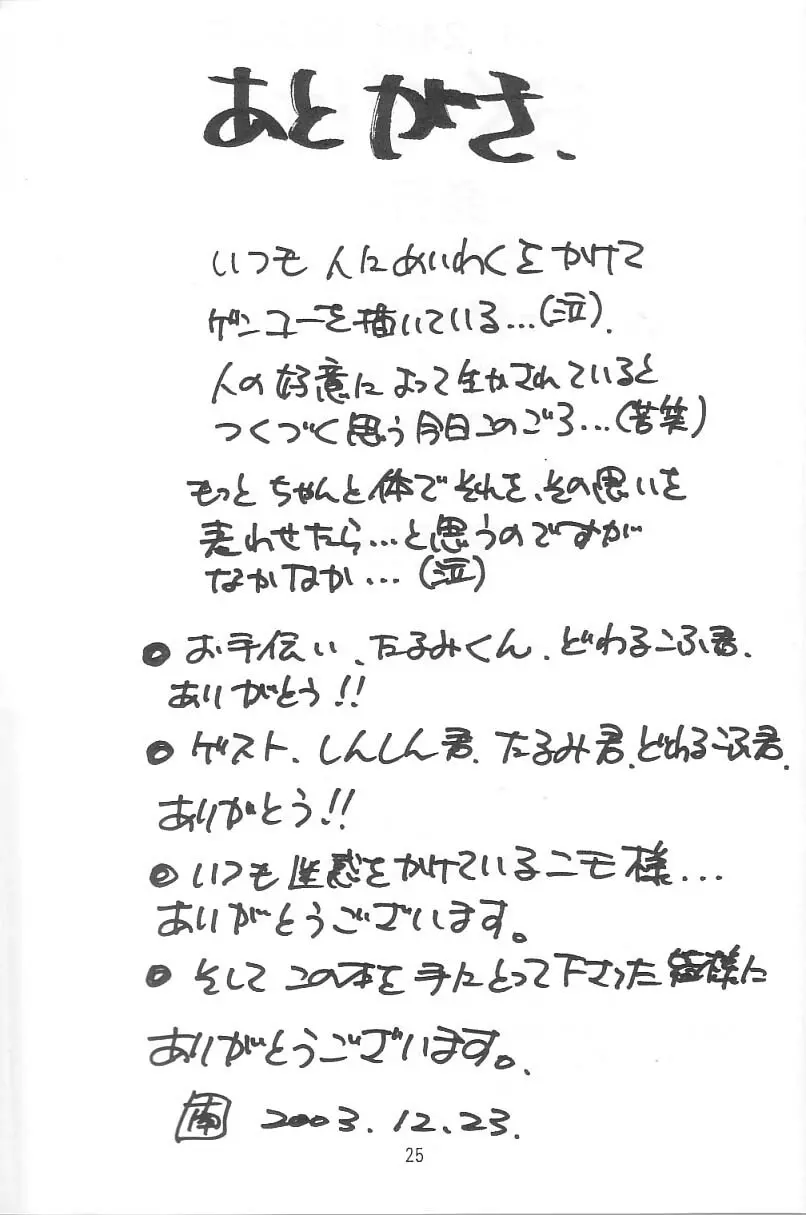 あとがき、
いつも人にめいわくをかけて
ゲンコーを描いている…(泣).
人の好意によって生かされていると
つくづく思う今日このごろ…(苦笑)
もっとちゃんと体でそれを、その思いを
表わせたら…と思うのですが
なかなか…(泣)
●お手伝い、たるみくん、どわるこふ君、
ありがとう!!
●ゲスト、しんしん君、たるみ君、どわるこふ君、
ありがとう!!
●いつも迷惑をかけているニモ様…
ありがとうございます。
●そして この本を手にとって下さった皆様に
ありがとうございます。
南 2003.12.23.
25